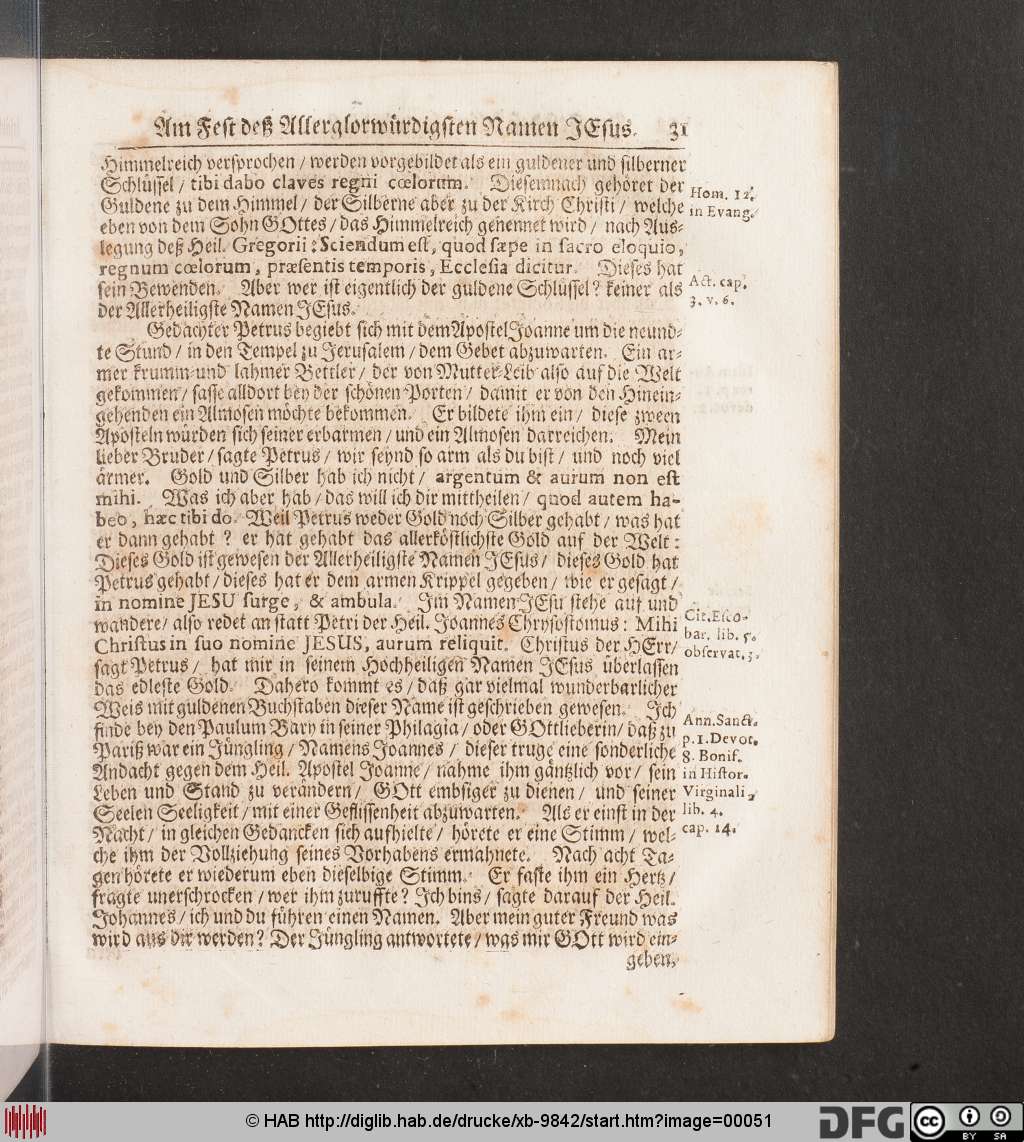 Am Fest deß Allerglorwürdigsten Namen JEsus. 31
Himmelreich versprochen / werden vorgebildet als ein guldener und silberner
Schlüssel / tibi dabo claves regni cœlorum. Diesemnach gehöret der
Guldene zu dem Himmel / der Silberne aber zu der Kirch Christi / welche
eben von dem Sohn GOttes / das Himmelreich genennet wird / nach Aus-
legung deß Heil. Gregorii: Sciendum est, quod sæpe in sacro eloquio,
regnum cœlorum, præsentis temporis, Ecclesia dicitur. Dieses hat
sein Bewenden. Aber wer ist eigentlich der guldene Schlüssel? keiner als
der Allerheiligste Namen JEsus.
Hom. 12.
in Evang.
Act. cap.
3. v. 6.
Gedachter Petrus begiebt sich mit dem Apostel Joanne um die neund-
te Stund / in den Tempel zu Jerusalem / dem Gebet abzuwarten. Ein ar-
mer krumm- und lahmer Bettler / der von Mutter-Leib also auf die Welt
gekommen / sasse alldort bey der schönen Porten / damit er von den Hinein-
gehenden ein Almosen möchte bekommen. Er bildete ihm ein / diese zween
Aposteln würden sich seiner erbarmen / und ein Almosen darreichen. Mein
lieber Bruder / sagte Petrus / wir seynd so arm als du bist / und noch viel
ärmer. Gold und Silber hab ich nicht / argentum & aurum non est
mihi. Was ich aber hab / das will ich dir mittheilen / quod autem ha-
beo, hæc tibi do. Weil Petrus weder Gold noch Silber gehabt / was hat
er dann gehabt? er hat gehabt das allerköstlichste Gold auf der Welt:
Dieses Gold ist gewesen der Allerheiligste Namen JEsus / dieses Gold hat
Petrus gehabt / dieses hat er dem armen Krippel gegeben / wie er gesagt /
in nomine JESU surge, & ambula. Im Namen JEsu stehe auf und
wandere / also redet an statt Petri der Heil. Joannes Chrysostomus: Mihi
Christus in suo nomine JESUS, aurum reliquit. Christus der HErr /
sagt Petrus / hat mir in seinem Hochheiligen Namen JEsus überlassen
das edleste Gold. Dahero kommt es / daß gar vielmal wunderbarlicher
Weis mit guldenen Buchstaben dieser Name ist geschrieben gewesen. Ich
finde bey den Paulum Bary in seiner Philagia / oder GOttlieberin / daß zu
Pariß war ein Jüngling / Namens Joannes / dieser truge eine sonderliche
Andacht gegen dem Heil. Apostel Joanne / nahme ihm gäntzlich vor / sein
Leben und Stand zu verändern / GOtt embsiger zu dienen / und seiner
Seelen Seeligkeit / mit einer Geflissenheit abzuwarten. Als er einst in der
Nacht / in gleichen Gedancken sich aufhielte / hörete er eine Stimm / wel-
che ihm der Vollziehung seines Vorhabens ermahnete. Nach acht Ta-
gen hörete er wiederum eben dieselbige Stimm. Er faste ihm ein Hertz /
fragte unerschrocken / wer ihm zuruffte? Ich bins / sagte darauf der Heil.
Johannes / ich und du führen einen Namen. Aber mein guter Freund was
wird aus dir werden? Der Jüngling antwortete / was mir GOtt wird ein-
geben,
Cit. Esco-
bar. lib. 5.
observat. 3.
Ann. Sanct.
p. 1. Devot.
8. Bonif.
in Histor.
Virginali,
lib. 4.
cap. 14.
© HAB http://diglib.hab.de/drucke/xb-9842/start.htm?image=00051
DFG
cc BY SA